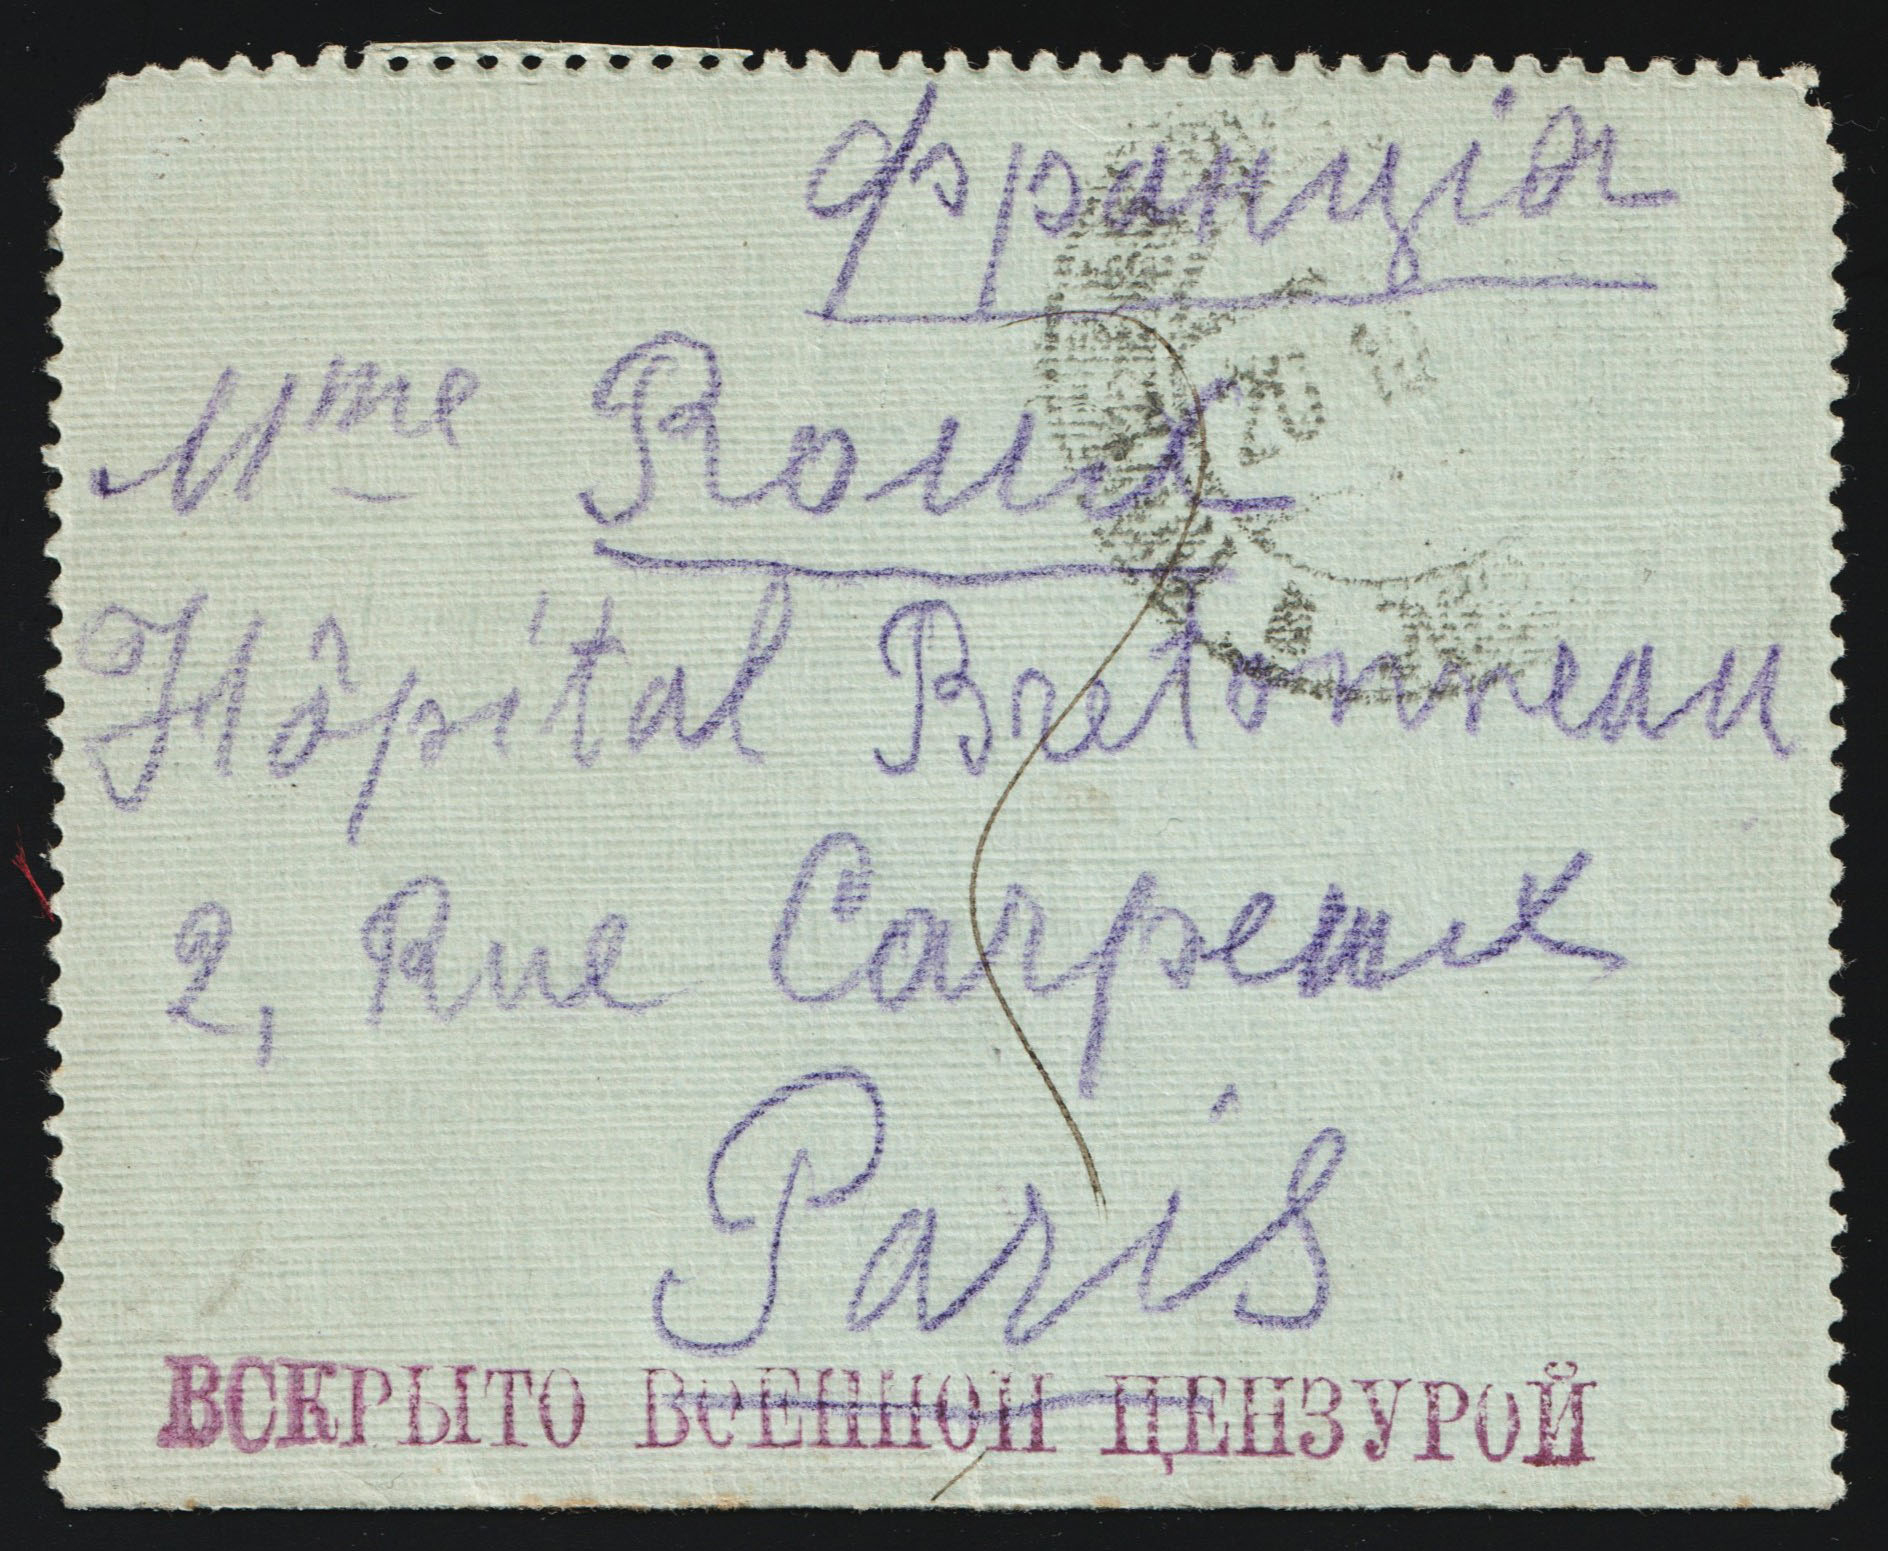 Франція
Mme Roux
Hôpital Bretonneau
2, Rue Carpeaux
Paris
ВСКРЫТО ВОЕННОЙ ЦЕНЗУРОЙ